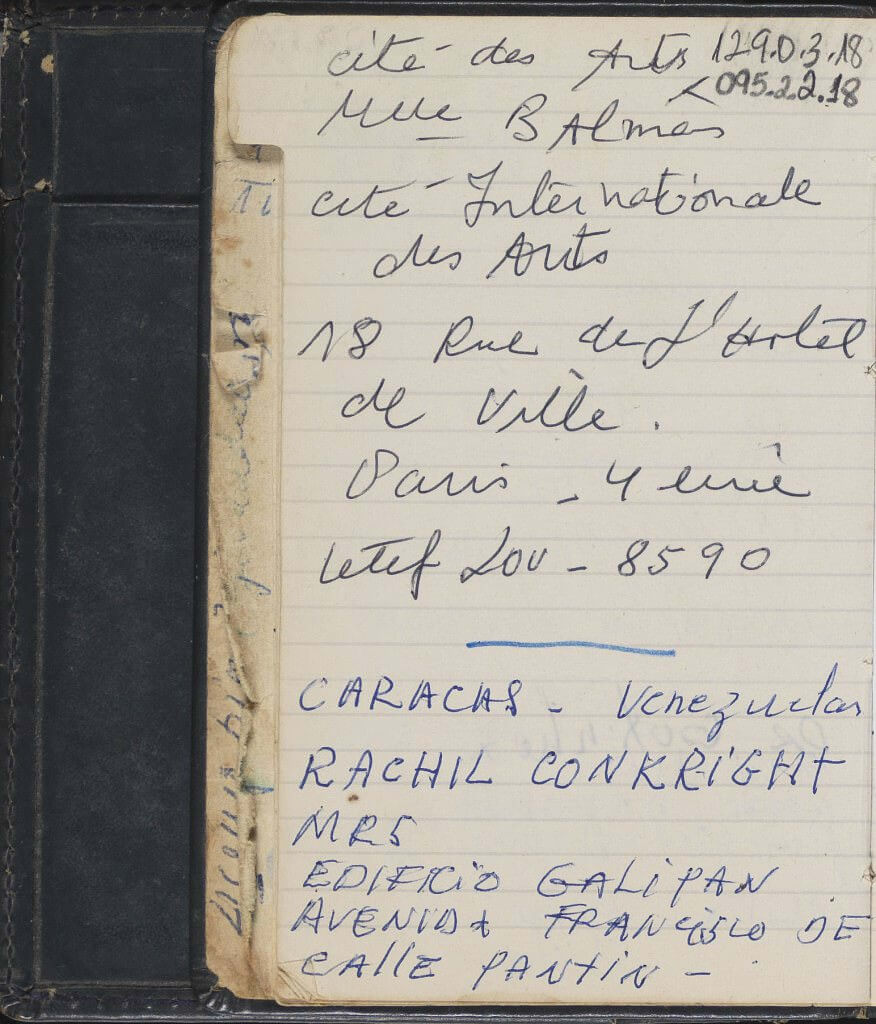 cité des Arts 129.0.3.18
095.2.2.18
Mlle BAlmès
cité Internationale
des Arts
18 Rue de l'Hotel
de Ville.
Paris - 4 eme
telef LOU - 8590
CARACAS - Venezuela
RACHIL CONKRIGHT
MRS
EDIFICIO GALIPAN
AVENIDA FRANCISCO DE
CAllE PANTIN -